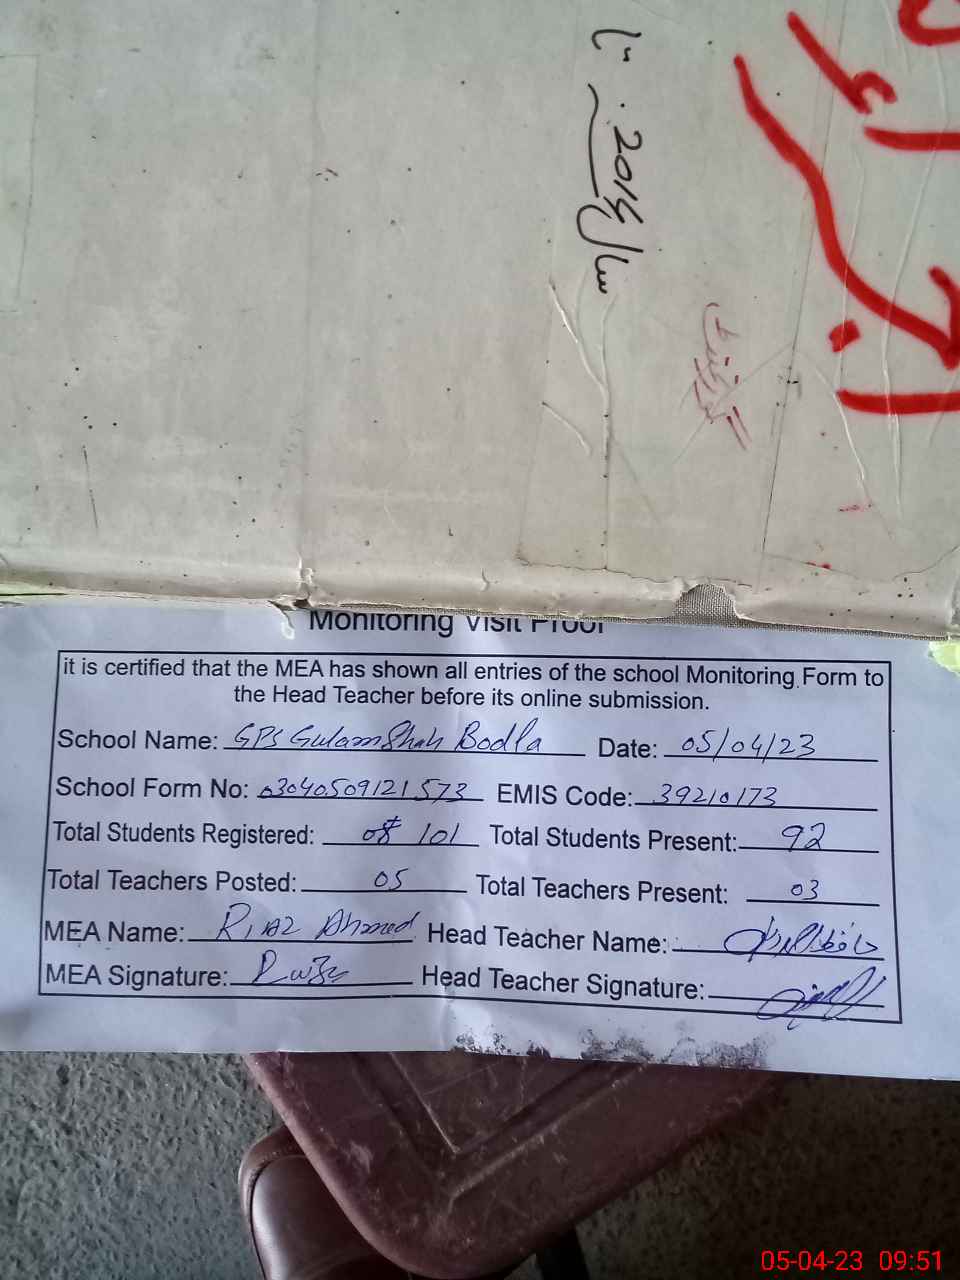 سال 2014
Monitoring Visit Proof
it is certified that the MEA has shown all entries of the school Monitoring Form to
the Head Teacher before its online submission.
School Name: GPS Gulam Shah Bodla Date: 05/04/23
School Form No: 03040509121573 EMIS Code: 39210173
Total Students Registered: 101 Total Students Present: 92
Total Teachers Posted: 05 Total Teachers Present: 03
MEA Name: Riaz Ahmed Head Teacher Name: حافظ
MEA Signature: Head Teacher Signature:
05-04-23 09:51